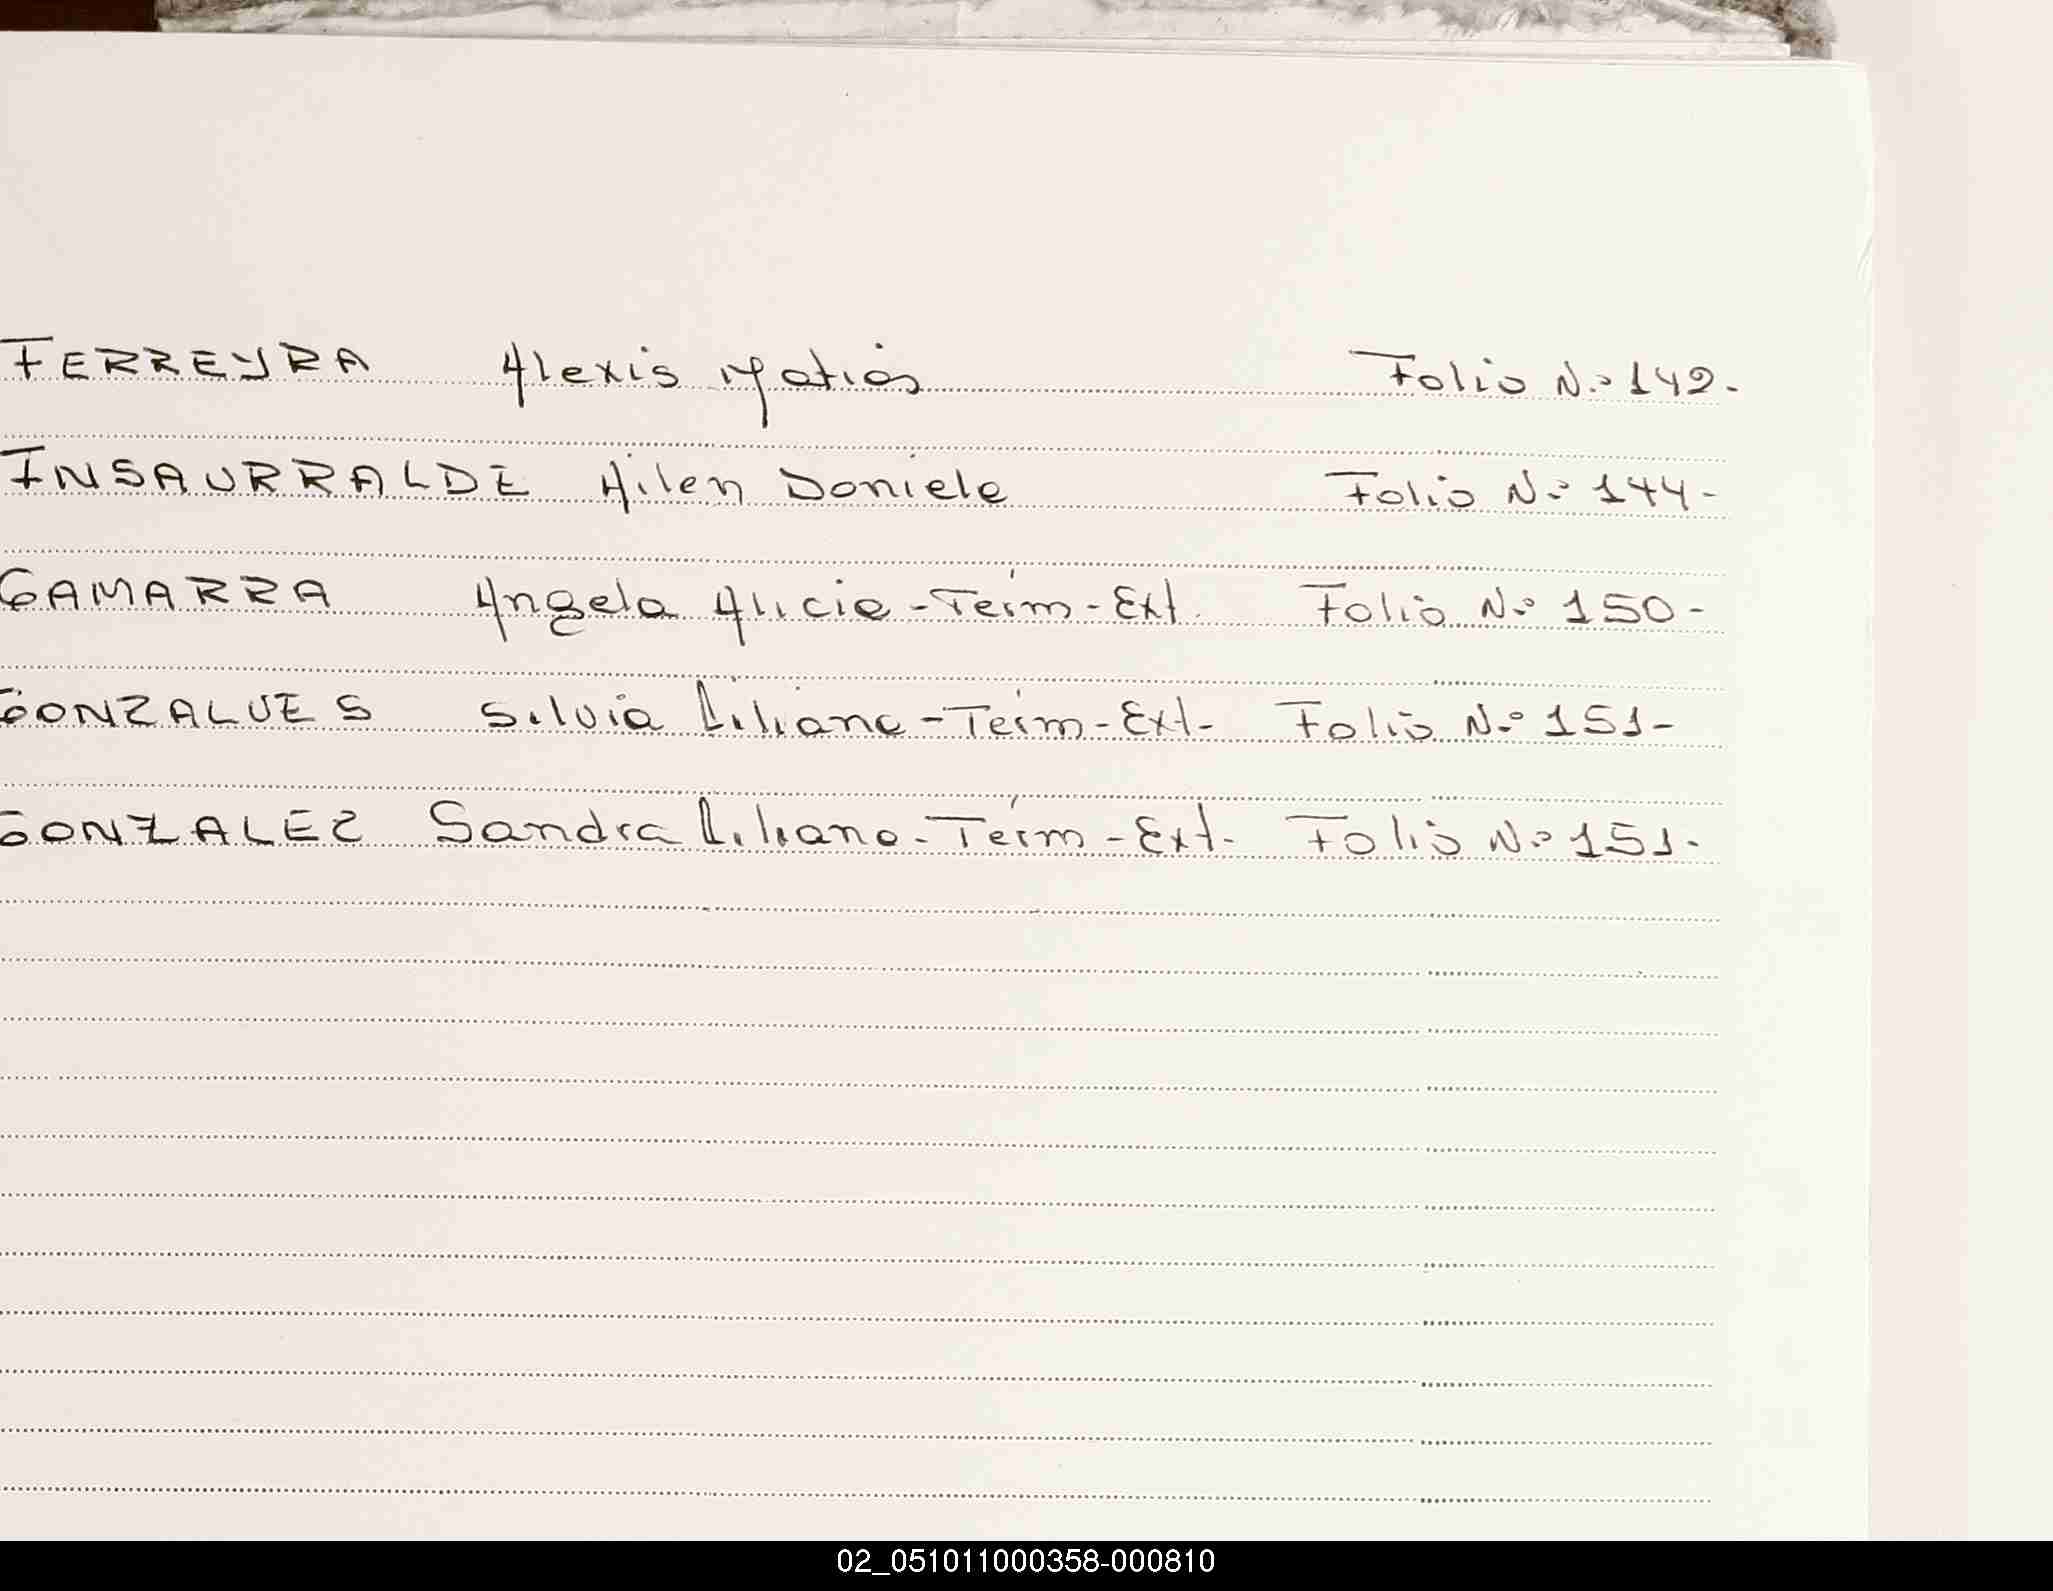 FERREYRA Alexis Matias Folio N.º 142.
INSAURRALDE Ailen Daniela Folio N.º 144-
GAMARRA Angela Alicia - Térm - Ext. Folio N.º 150-
GONZALVES Silvia Liliana - Térm - Ext - Folio N.º 151-
GONZALEZ Sandra Liliana - Térm - Ext. Folio N.º 151.
02_051011000358-000810